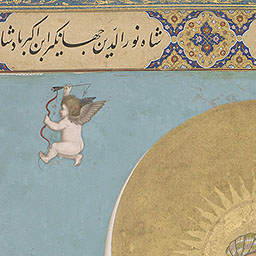 شاه نور الدین جهانگیر ابن اکبر پادشا